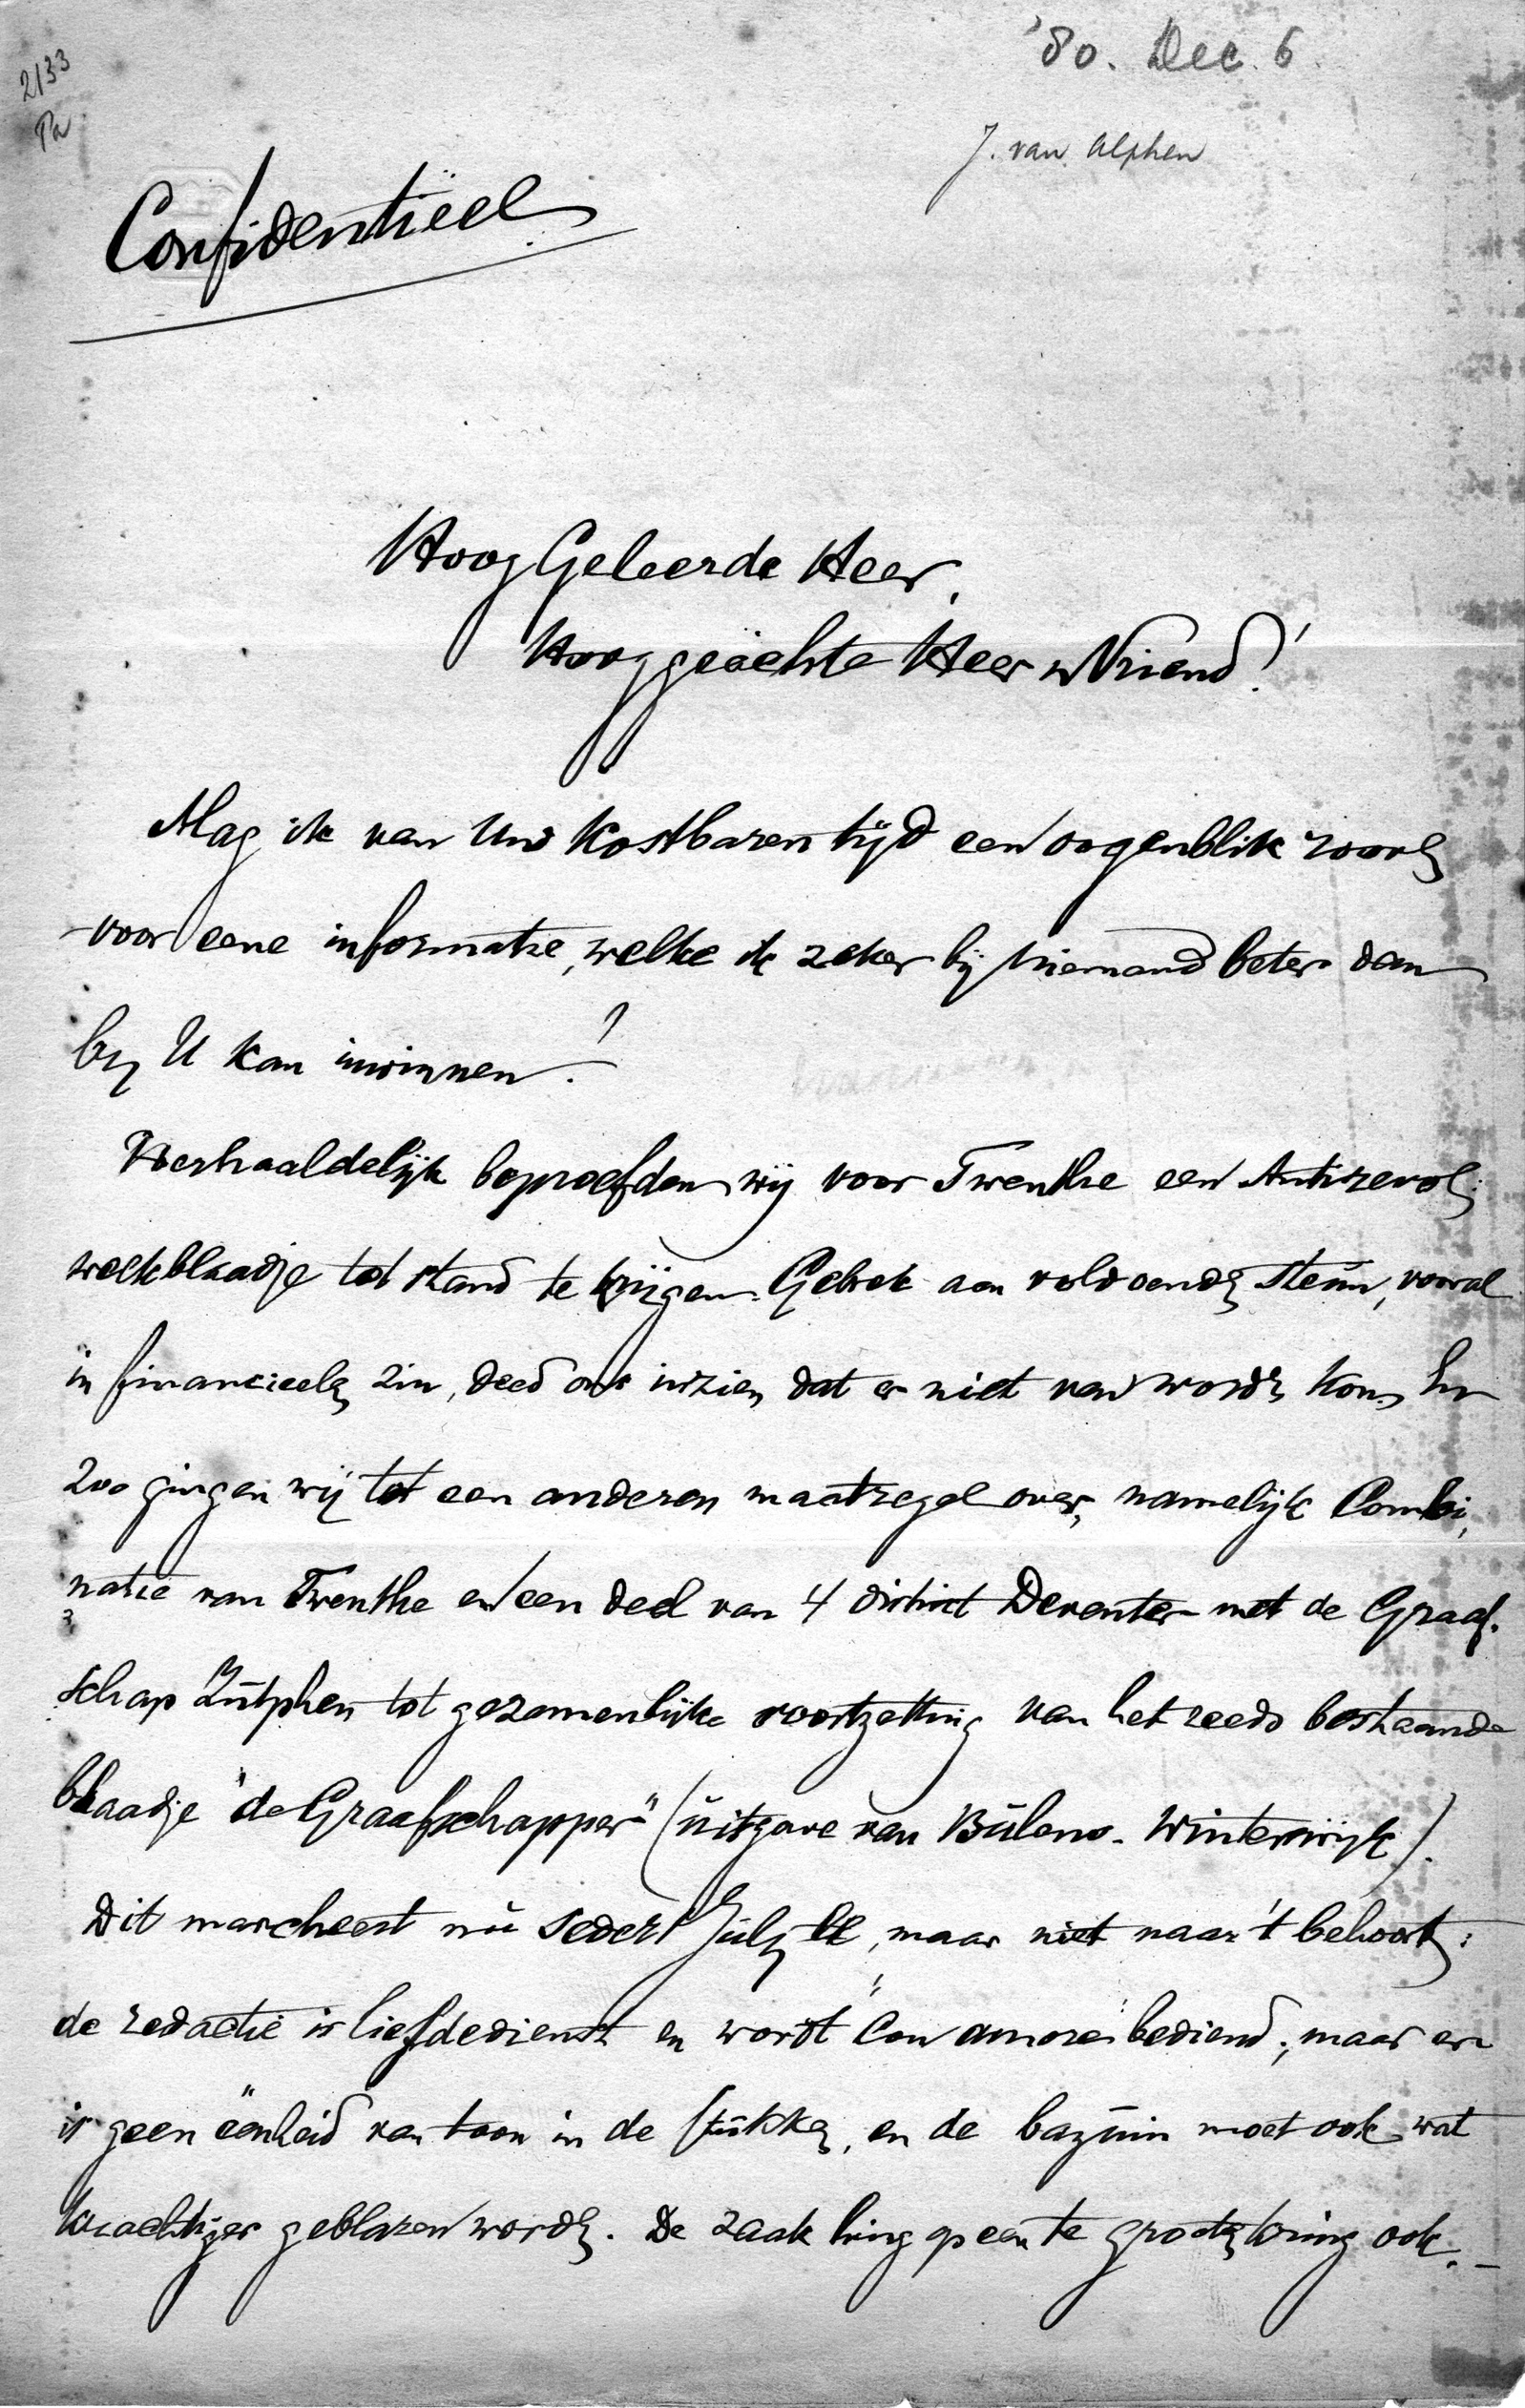 2133
Pa
'80. Dec. 6.
J. van Alphen
Confidentiëel
HoogGeleerde Heer,
Hooggeächte Heer en Vriend!
Mag ik van Uw kostbaren tijd een oogenblik roven
voor eene informatie, welke ik zeker bij niemand beter dan
bij U kan inwinnen?
Herhaaldelijk beproefden wij voor Twenthe een Antirevol:
weekblaadje tot stand te krijgen. Gebrek aan voldoenden steun, vooral
in financieelen zin, deed ons inzien dat er niet van worden kon. En
zoo gingen wij tot een anderen maatregel over, namelijk Combi,
natie van Twenthe en een deel van 't district Deventer met de Graaf-
schap Zutphen tot gezamenlijke voortzetting van het reeds bestaande
blaadje "de Graafschapper" (uitgave van Bulens- Winterwijk).
Dit marcheert nu sedert July ll, maar niet naar 't behoort:
de redactie is liefdedienst en wordt "con amore" bediend; maar er
is geen éénheid van toon in de stukken, en de bazuin moet ook wat
krachtiger geblazen worden. De zaak hing op een te grooten kring ook.-